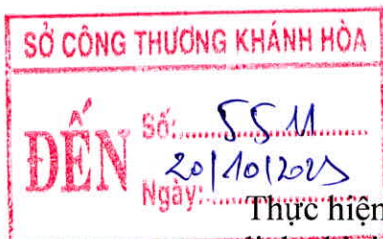 SỞ CÔNG THƯƠNG KHÁNH HÒA
ĐẾN
Số: 5511
Ngày: 20/10/2023
Thực hiện